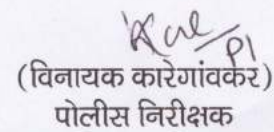 (विनायक कारेगांवकर)
पोलीस निरीक्षक